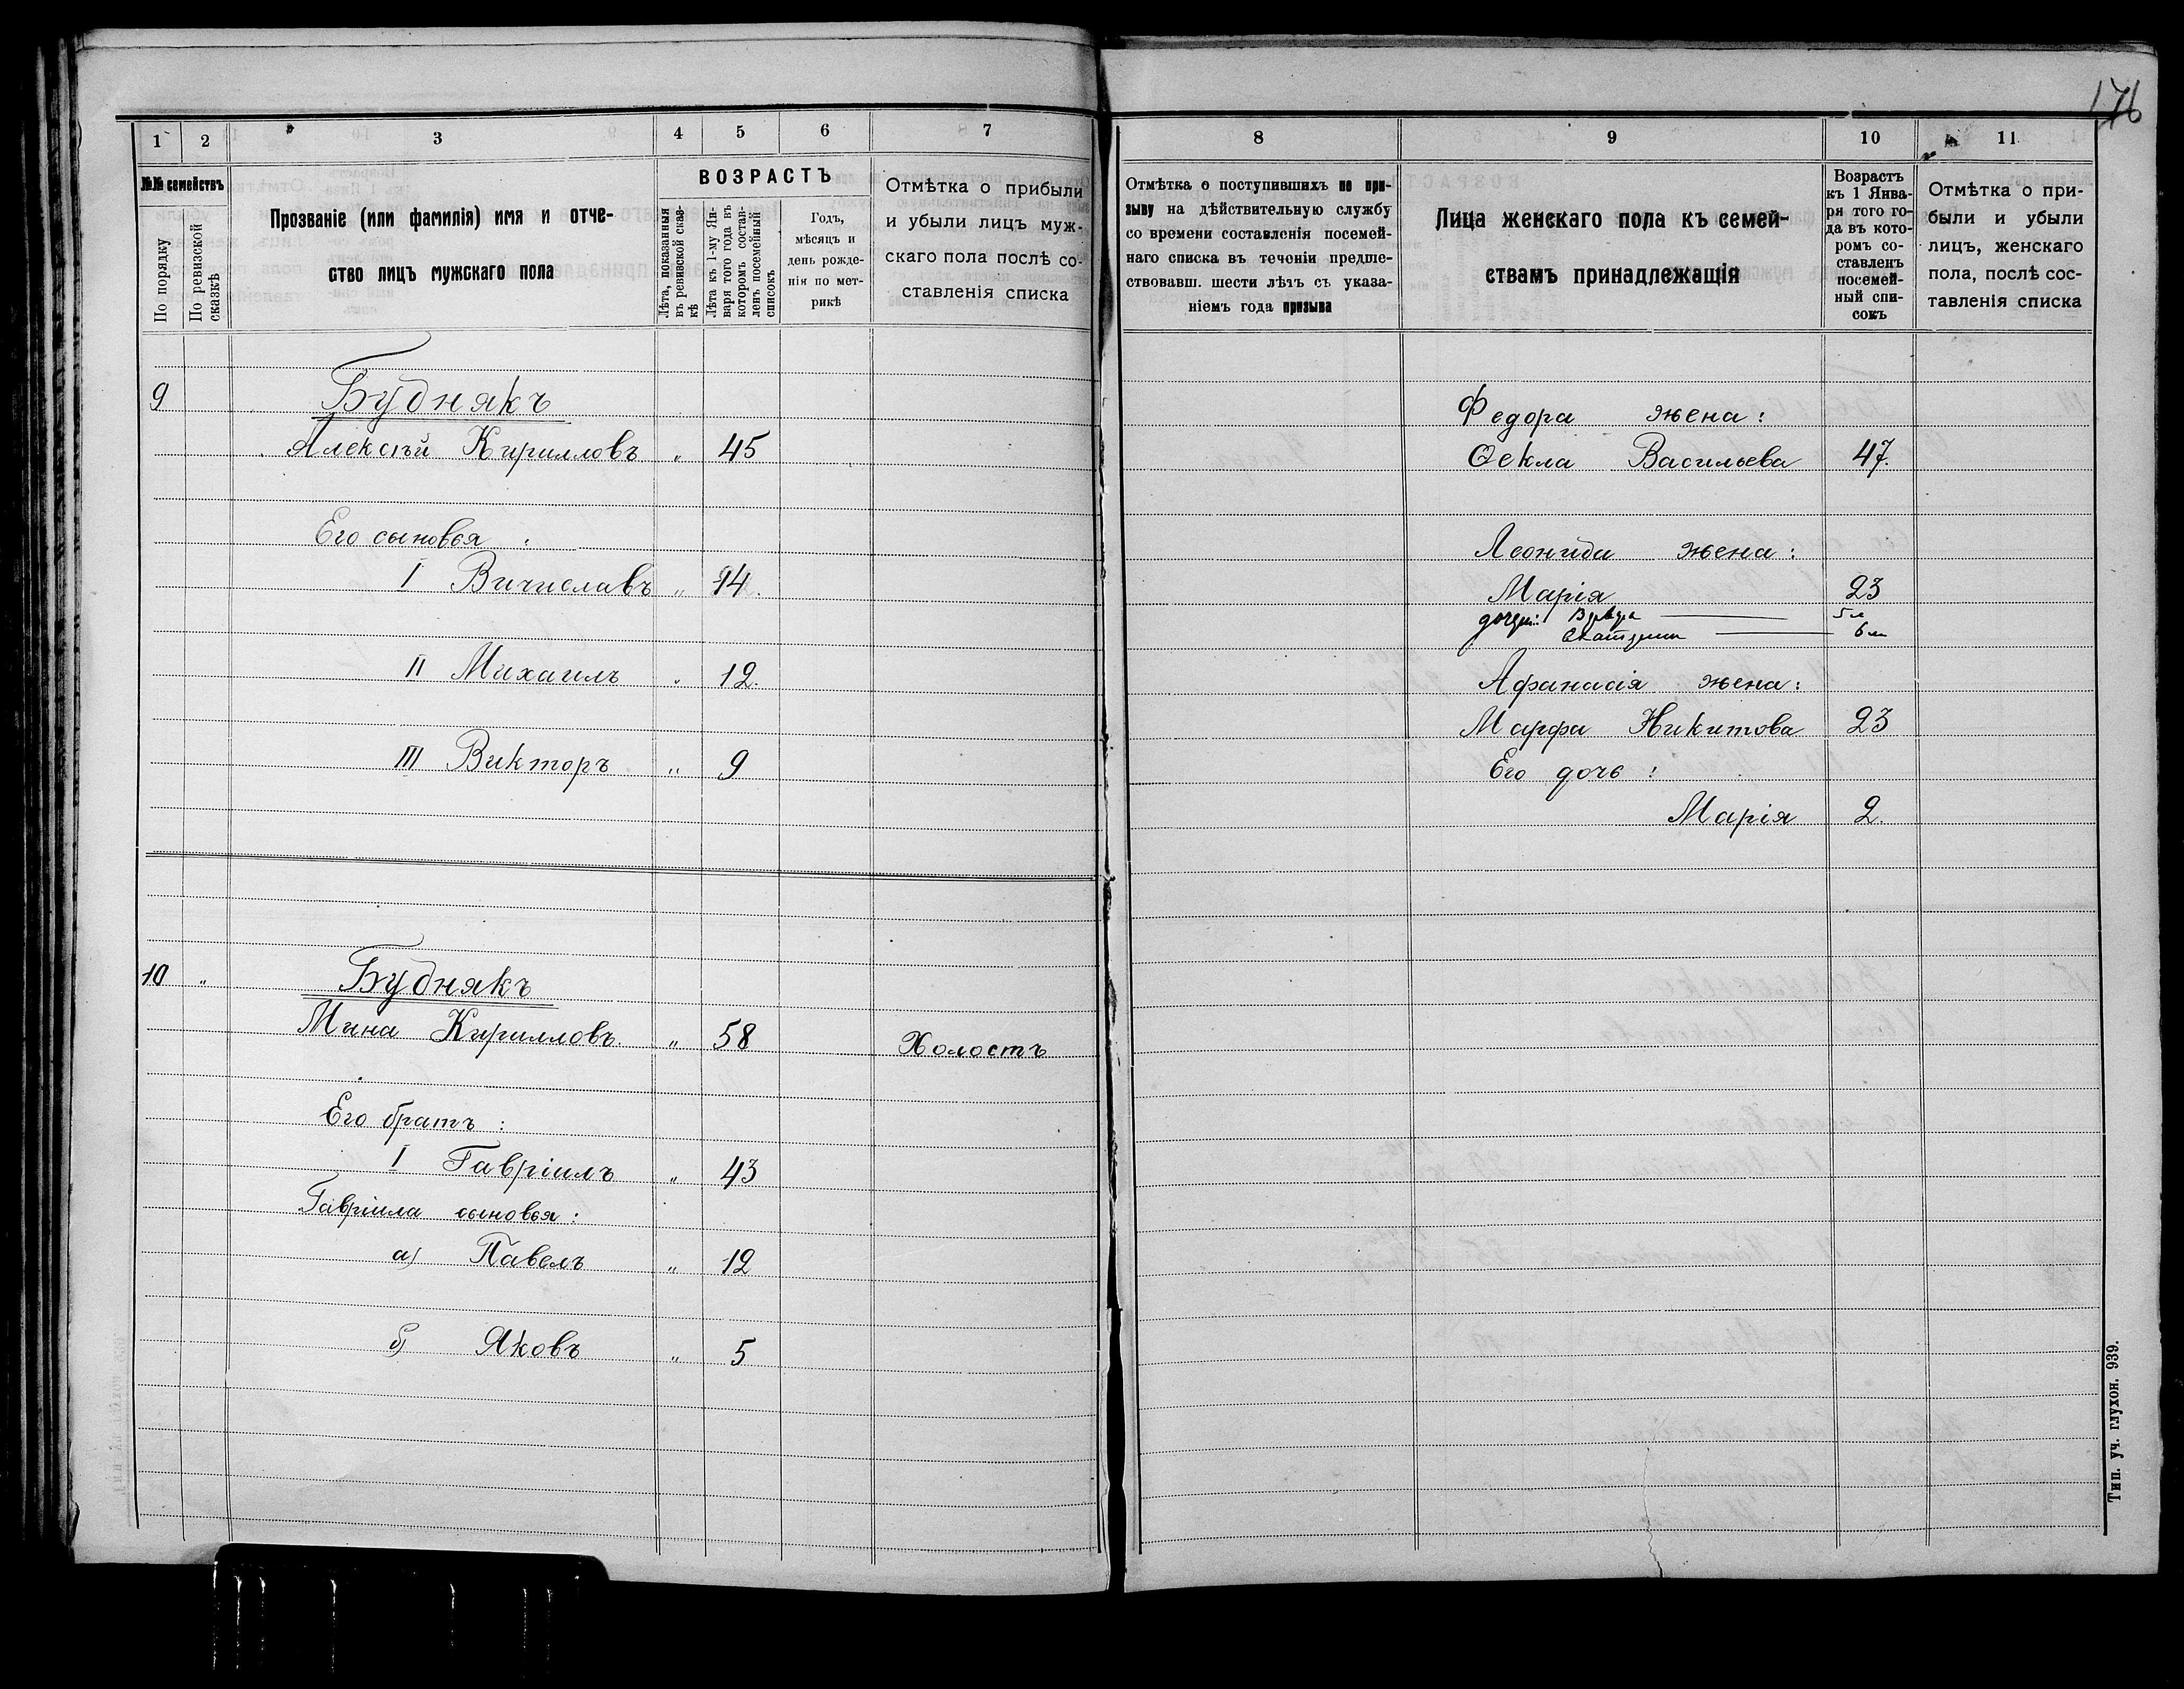 176
1 2 3 4 5 6 7
№№ семействъ
По порядку
По ревизской сказкѣ
Прозваніе (или фамилія) имя и отче-
ство лицъ мужскаго пола
ВОЗРАСТЪ
Лѣта, показанныя
въ ревизской сказ-
кѣ
Лѣта къ 1-му Ян-
варя того года въ
которомъ состав-
ленъ посемейный
списокъ
Годъ,
мѣсяцъ и
день рожде-
нія по мет-
рикѣ
Отмѣтка о прибыли
и убыли лицъ муж-
скаго пола послѣ со-
ставленія списка
9 Буднякъ
Алексѣй Кирилловъ „ 45
Его сыновья :
I Вичиславъ „ 14.
II Михаилъ „ 12.
III Викторъ „ 9
10 „ Буднякъ
Мина Кирилловъ. „ 58 Холостъ
Его братъ :
I Гавріилъ „ 43
Гавріила сыновья :
а) Павелъ „ 12
б) Яковъ „ 5
8 9 10 11
Отмѣтка о поступившихъ по при-
зыву на дѣйствительную службу
со времени составленія посемей-
наго списка въ теченіи предше-
ствовавш. шести лѣтъ съ указа-
ніемъ года призыва
Лица женскаго пола къ семей-
ствамъ принадлежащія
Возрастъ
къ 1 Янва-
ря того го-
да въ кото-
ромъ со-
ставленъ
посемей-
ный спи-
сокъ
Отмѣтка о при-
были и убыли
лицъ, женскаго
пола, послѣ сос-
тавленія списка
Федора жена :
Ѳекла Васильева 47.
Леонида жена :
Марія 23
5 л
6 л
Афанасія жена :
Марфа Никитова 23
Его дочь :
Марія 2.
Тип. уч. глухон. 939.